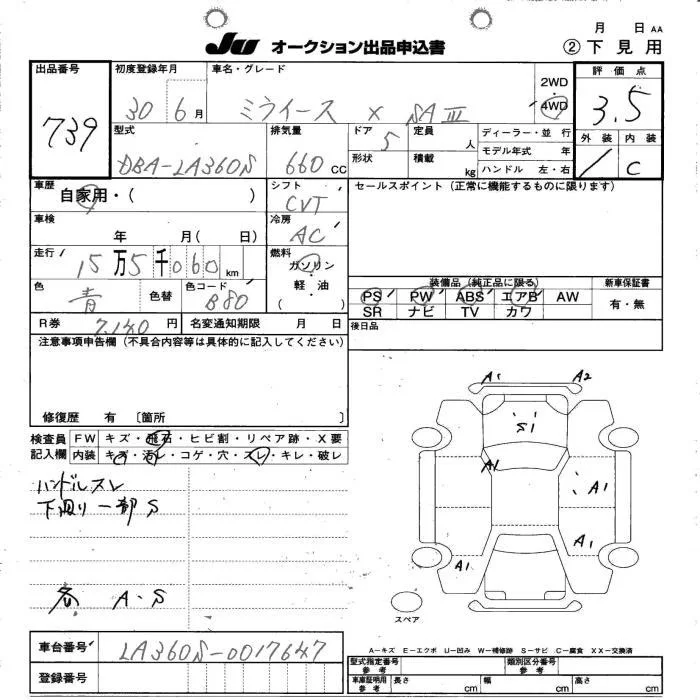 月 日 AA
JU オークション出品申込書
② 下見用
出品番号 739
初度登録年月 30 6月
車名・グレード ミライース X SAⅢ
2WD
4WD
評価点 3.5
型式 DBA-LA360S
排気量 660 CC
ドア 5
定員 人
形状
積載 kg
ディーラー・並行
モデル年式 年
ハンドル 左・右
外装
内装 C
車歴 自家用・( )
シフト CVT
セールスポイント(正常に機能するものに限ります)
車検 年 月( 日)
冷房 AC
走行 15万5千060 km
燃料 ガソリン・軽油・( )
色 青 色替
色コード B80
装備品(純正品に限る)
新車保証書
PS PW ABS エアB AW
有・無
SR ナビ TV カワ
R券 7,140円
名変通知期限 月 日
後日品
注意事項申告欄(不具合内容等は具体的に記入してください)
修復歴 有 〔箇所 〕
検査員記入欄
FW キズ・飛石・ヒビ割・リペア跡・X要
内装 キズ・汚レ・コゲ・穴・スレ・キレ・破レ
ハンドルスレ
下回り一部S
各 A・S
A1 A2
S1
A1
A1
A1
A1
スペア
車台番号 LA360S-0017647
登録番号
A-キズ E-エクボ U-凹み W-補修跡 S-サビ C-腐食 XX-交換済
型式指定番号 参考
類別区分番号 参考
車庫証明用 参考
長さ cm
幅 cm
高さ cm